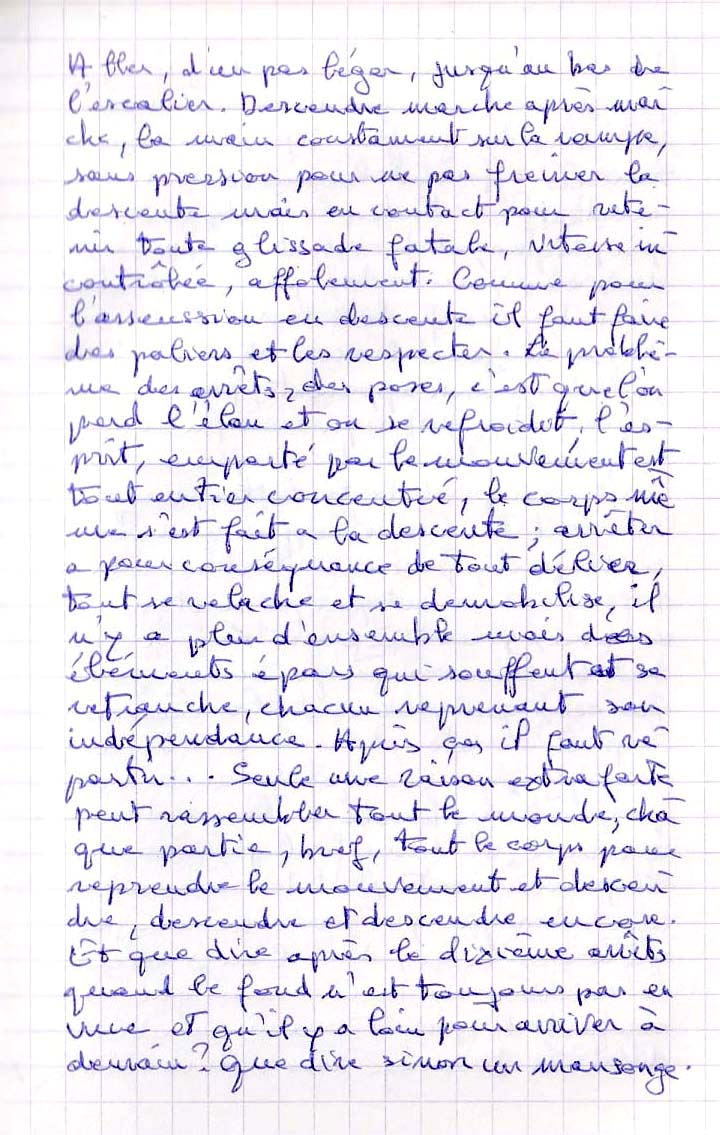 Aller, d'un pas léger, jusqu'au bas de
l'escalier. Descendre marche après mar
che, la main constamment sur la rampe,
sans pression pour ne pas freiner la
descente mais en contact pour rete-
nir toute glissade fatale, vitesse in
contrôlée, affolement. Comme pour
l'ascenssion en descente il faut faire
des paliers et les respecter. Le problè-
me des arrêts, des poses, c'est que l'on
perd l'élan et on se refroidit, l'es-
prit, emporté par le mouvement est
tout entier concentré, le corps mê
me s'est fait a la descente ; arrêter
a pour conséquance de tout délier,
tout se relache et se demobilise, il
n'y a plus d'ensemble mais des
éléments épars qui souffent et se
retranche, chacun reprenant son
indépendance. Après ça, il faut re
partir... Seule une raison extra forte
peut rassembler tout le monde, cha
que partie, bref, tout le corps pour
reprendre le mouvement et descen
dre, descendre et descendre encore.
Et que dire après le dixième arrêts
quand le fond n'est toujours pas en
vue et qu'il y a loin pour arriver à
demain ? Que dire sinon un mensonge.